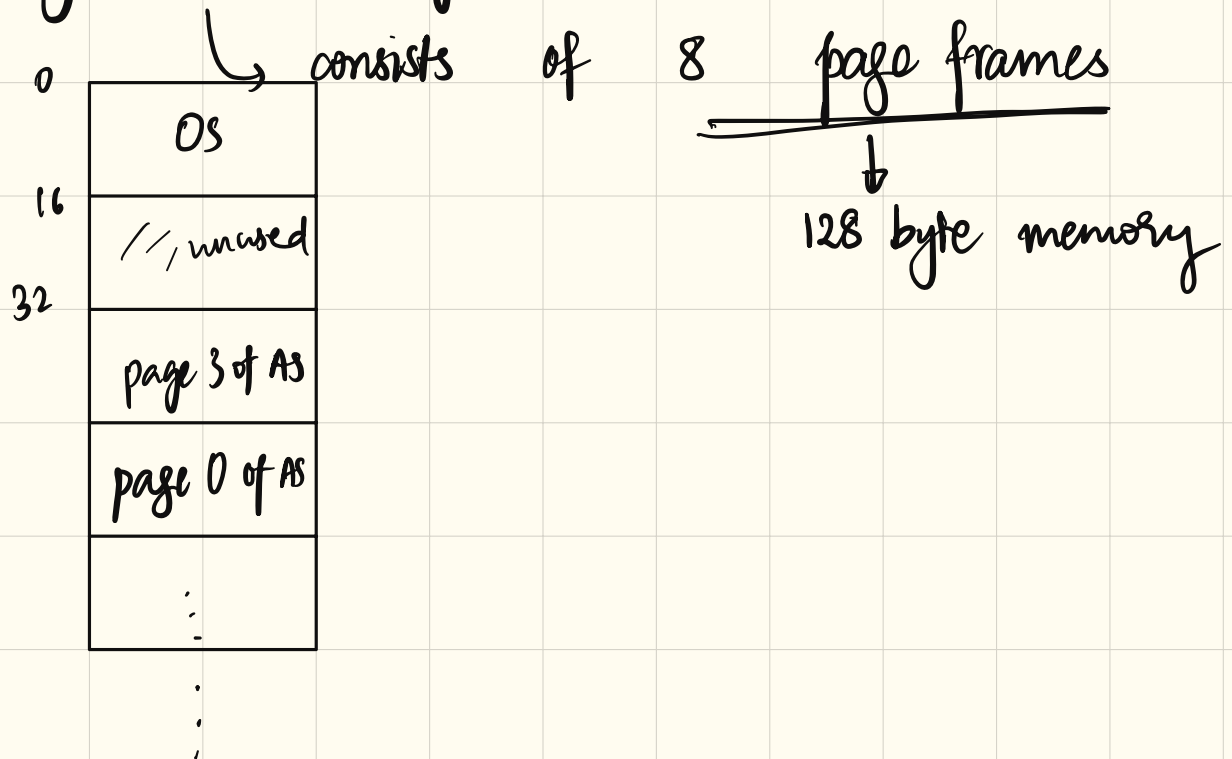 consists of 8 page frames
0
OS
128 byte memory
16
unused
32
page 3 of AS
page 0 of AS